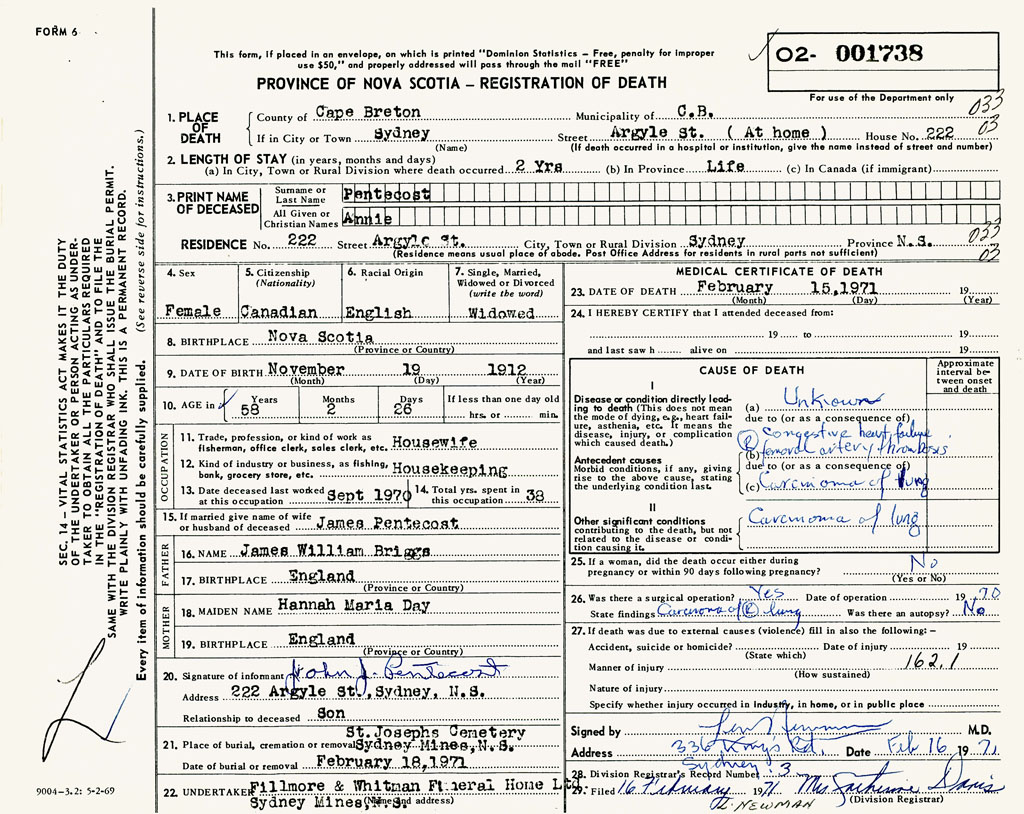 FORM 6
This form, if placed in an envelope, on which is printed "Dominion Statistics – Free, penalty for improper
use $50," and properly addressed will pass through the mail "FREE"
02- 001738
For use of the Department only
PROVINCE OF NOVA SCOTIA – REGISTRATION OF DEATH
033
03
1. PLACE OF DEATH
County of Cape Breton Municipality of C.B.
If in City or Town Sydney Street Argyle St. ( At home ) House No. 222
(Name) (If death occurred in a hospital or institution, give the name instead of street and number)
2. LENGTH OF STAY (in years, months and days)
(a) In City, Town or Rural Division where death occurred 2 Yrs (b) In Province Life (c) In Canada (if immigrant)
3. PRINT NAME OF DECEASED
Surname or Last Name Pentecost
All Given or Christian Names Annie
033
03
RESIDENCE No. 222 Street Argyle St. City, Town or Rural Division Sydney Province N.S.
(Residence means usual place of abode. Post Office Address for residents in rural parts not sufficient)
4. Sex
Female
5. Citizenship
(Nationality)
Canadian
6. Racial Origin
English
7. Single, Married,
Widowed or Divorced
(write the word)
Widowed
8. BIRTHPLACE Nova Scotia
(Province or Country)
9. DATE OF BIRTH November 19 1912
(Month) (Day) (Year)
10. AGE in Years Months Days If less than one day old
58 2 26 hrs. or min.
OCCUPATION
11. Trade, profession, or kind of work as
fisherman, office clerk, sales clerk, etc. Housewife
12. Kind of industry or business, as fishing,
bank, grocery store, etc. Housekeeping
13. Date deceased last worked
at this occupation Sept 1970
14. Total yrs. spent in
this occupation 38
15. If married give name of wife
or husband of deceased James Pentecost
FATHER
16. NAME James William Briggs
17. BIRTHPLACE England
(Province or Country)
MOTHER
18. MAIDEN NAME Hannah Maria Day
19. BIRTHPLACE England
(Province or Country)
20. Signature of informant John J. Pentecost
Address 222 Argyle St., Sydney, N.S.
Relationship to deceased Son
St.Josephs Cemetery
21. Place of burial, cremation or removal Sydney Mines,N.S.
Date of burial or removal February 18,1971
22. UNDERTAKER Fillmore & Whitman Funeral Home Ltd.
Sydney Mines,N.S.
(Name and address)
MEDICAL CERTIFICATE OF DEATH
23. DATE OF DEATH February 15,1971 19
(Month) (Day) (Year)
24. I HEREBY CERTIFY that I attended deceased from:
19 to 19
and last saw h alive on 19
CAUSE OF DEATH
Approximate
interval be-
tween onset
and death
I
Disease or condition directly lead-
ing to death (This does not mean
the mode of dying, e.g., heart fail-
ure, asthenia, etc. It means the
disease, injury, or complication
which caused death.)
(a) Unkown
due to (or as a consequence of)
congestive heart failure
(b) R femoral artery thrombosis
Antecedent causes
Morbid conditions, if any, giving
rise to the above cause, stating
the underlying condition last.
due to (or as a consequence of)
(c) Carcinoma of lung
II
Other significant conditions
contributing to the death, but not
related to the disease or condi-
tion causing it.
Carcinoma of lung
25. If a woman, did the death occur either during
pregnancy or within 90 days following pregnancy? No
(Yes or No)
26. Was there a surgical operation? Yes Date of operation 19 70
State findings Carcinoma of R lung Was there an autopsy? No
27. If death was due to external causes (violence) fill in also the following: –
Accident, suicide or homicide? Date of injury 19
(State which)
Manner of injury 162.1
(How sustained)
Nature of injury
Specify whether injury occurred in industry, in home, or in public place
Signed by Len Newman M.D.
Address 336 Kings Rd. Date Feb 16 19 71
Sydney
28. Division Registrar's Record Number 3
29. Filed 16 February 1971 Mrs Katherine Davis
(Division Registrar)
L. NEWMAN
SEC. 14 – VITAL STATISTICS ACT MAKES IT THE DUTY
OF THE UNDERTAKER OR PERSON ACTING AS UNDER-
TAKER TO OBTAIN ALL THE PARTICULARS REQUIRED
IN THE "REGISTRATION OF DEATH" AND TO FILE THE
SAME WITH THE DIVISION REGISTRAR WHO SHALL ISSUE THE BURIAL PERMIT.
WRITE PLAINLY WITH UNFADING INK. THIS IS A PERMANENT RECORD.
Every item of information should be carefully supplied. (See reverse side for instructions.)
9004–3.2: 5-2-69